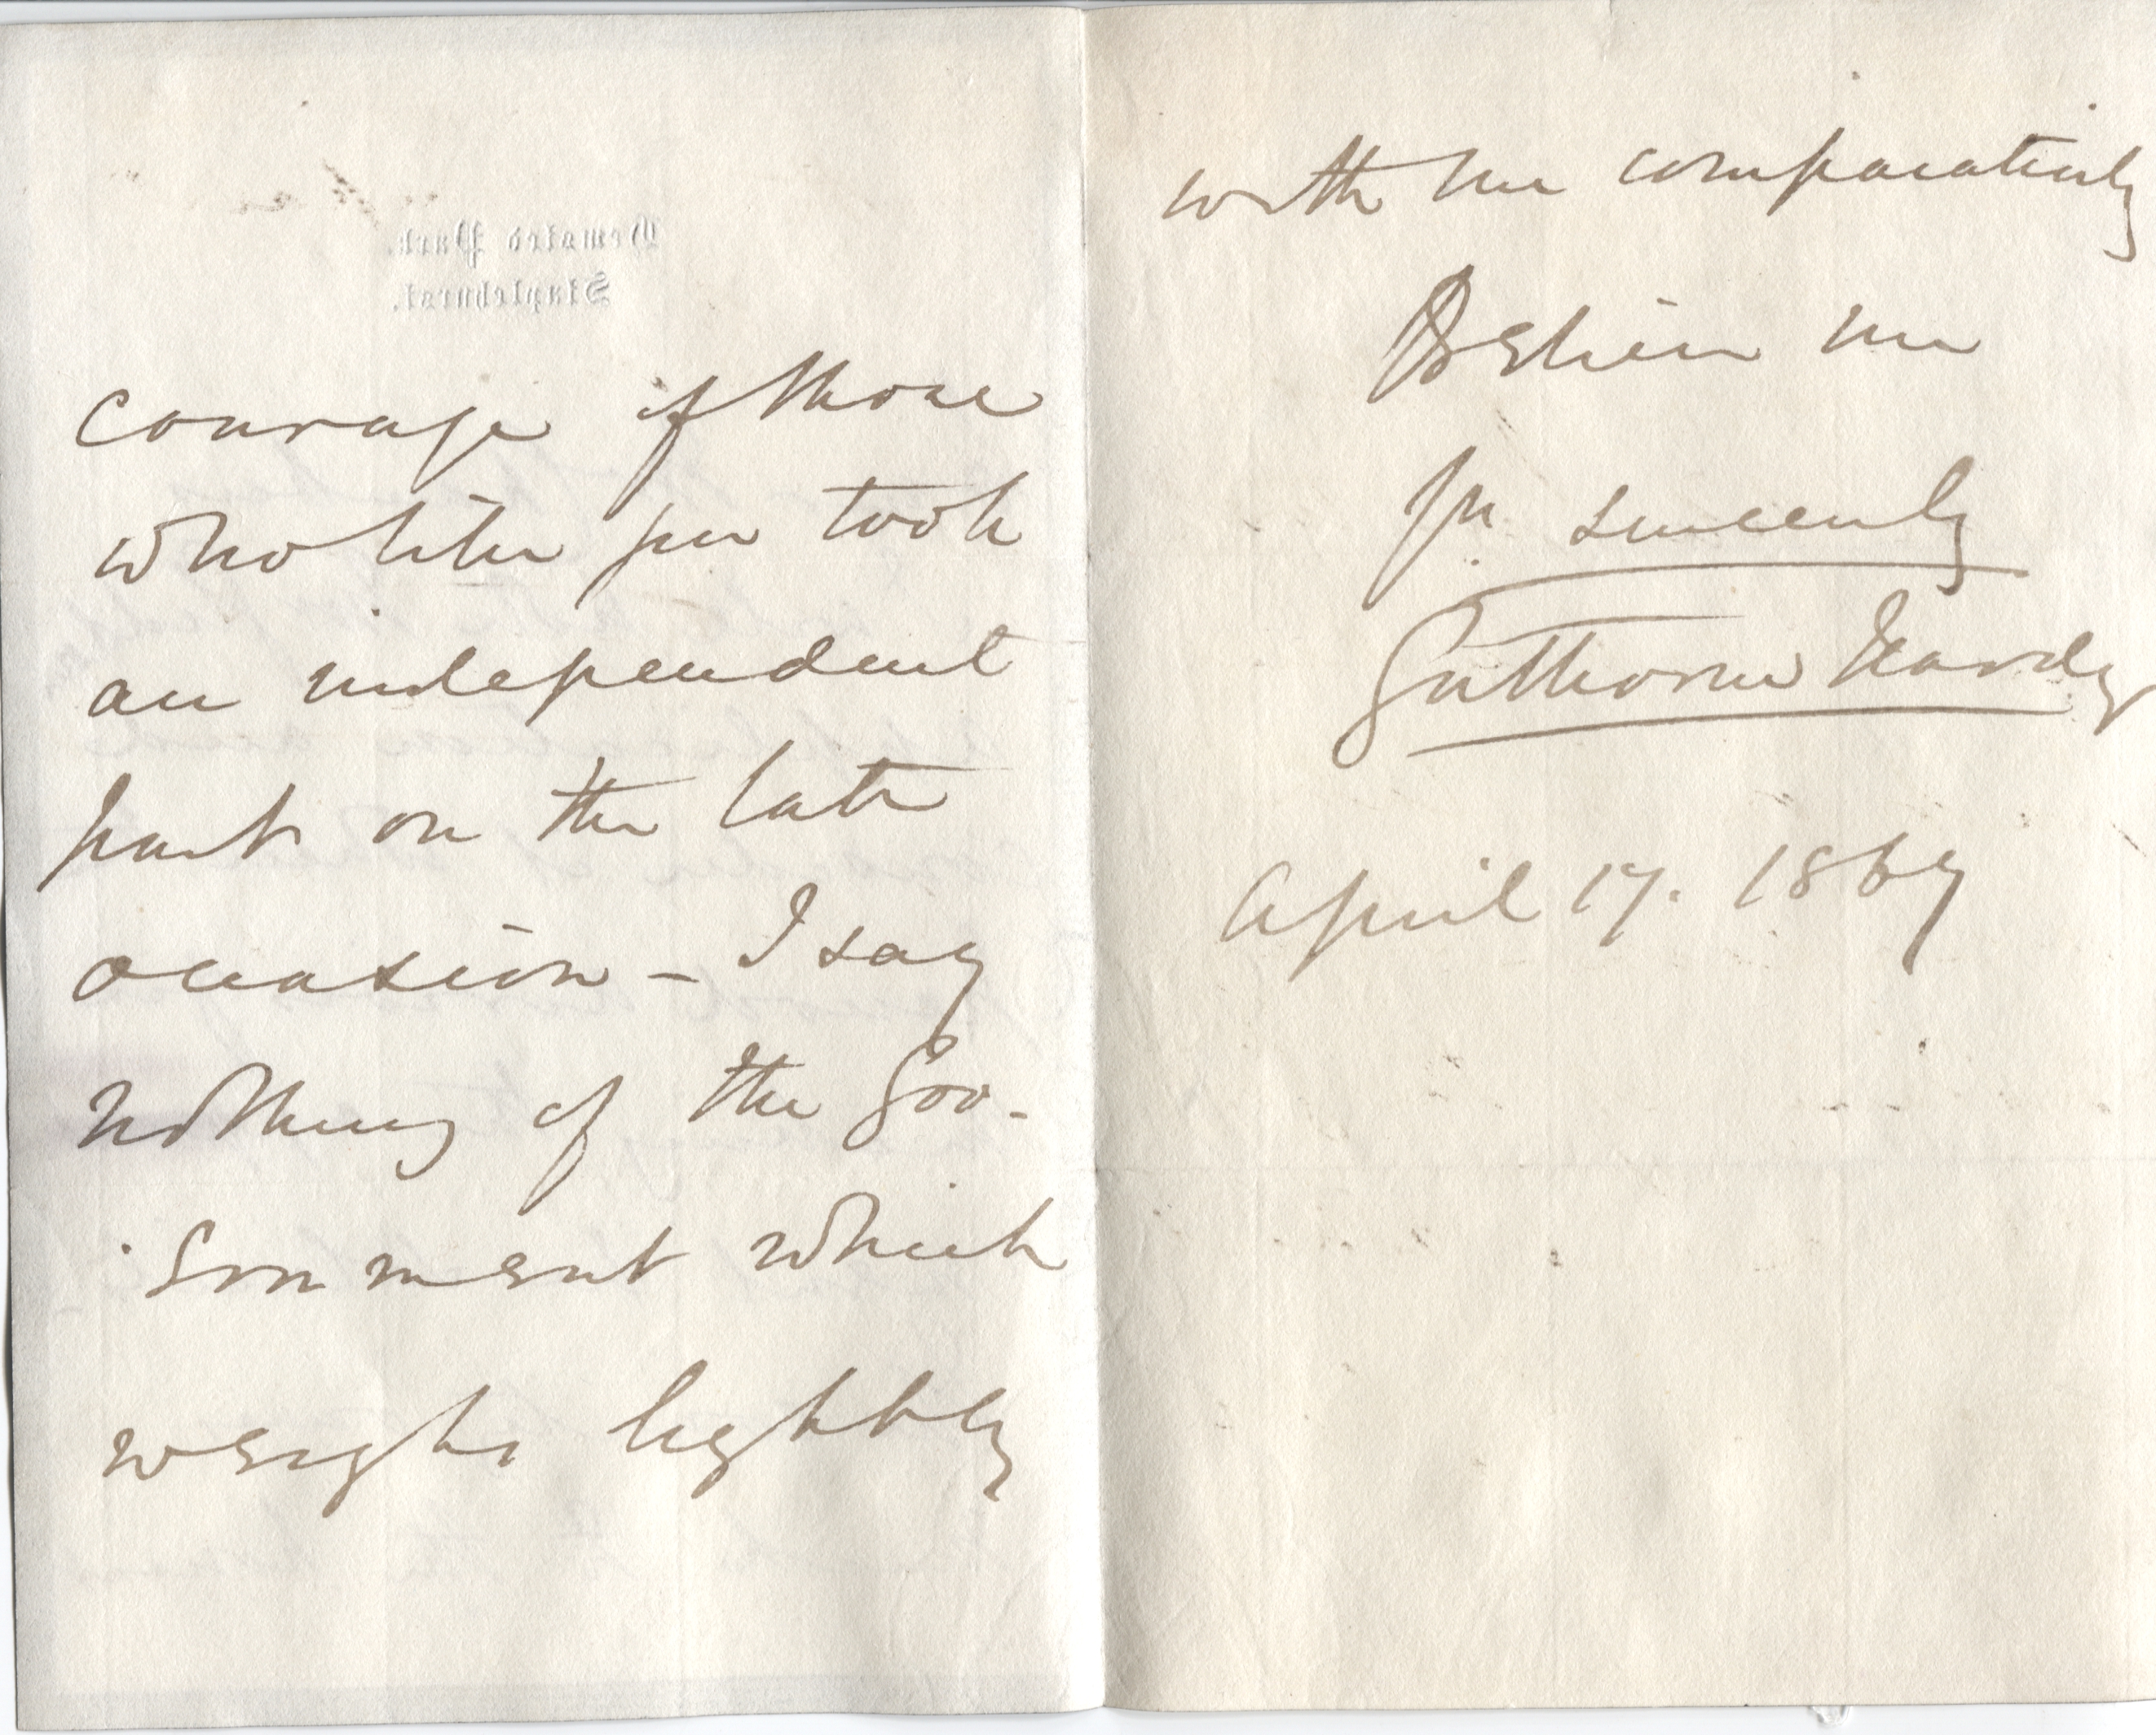 Hemsted Park.
Staplehurst.
courage of those
who like you took
an independent
part on the late
occasion - I say
nothing of the Gov-
ernment which
weighs lightly
with me comparatively
Believe me
Yrs sincerely
Gathorne Hardy
April 17. 1867